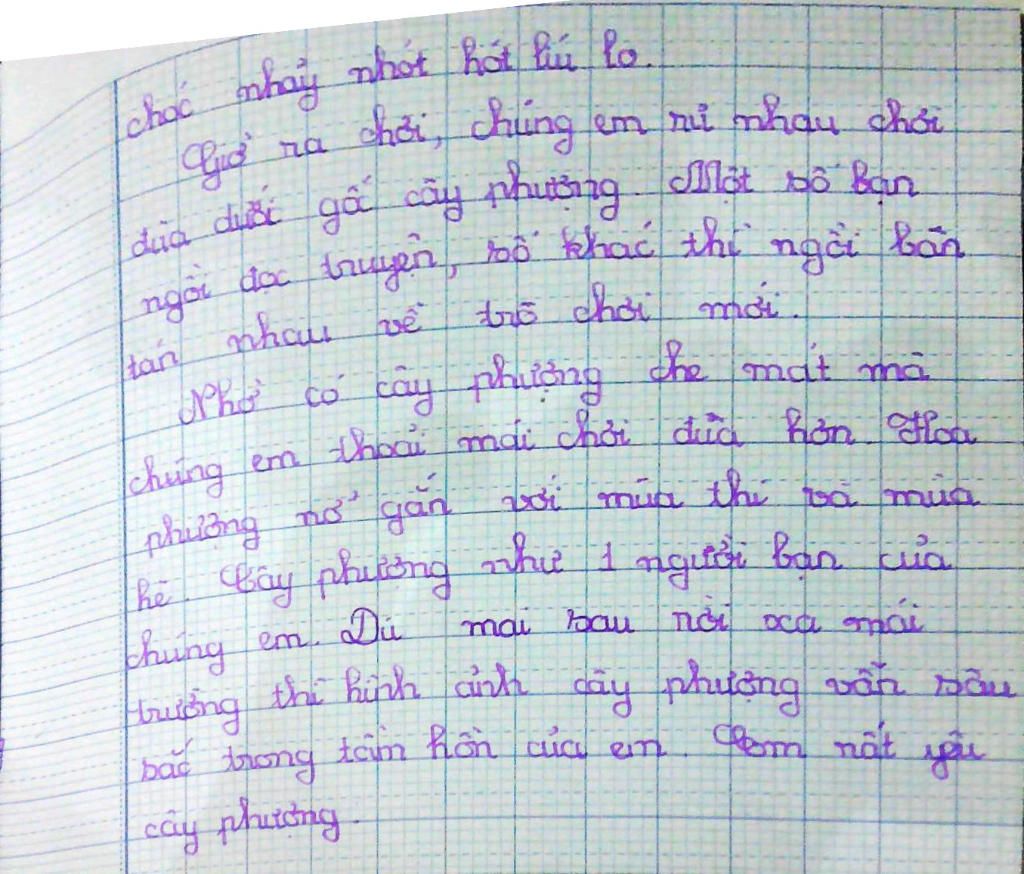 chóc nhảy nhót hót líu lo.
Giờ ra chơi, chúng em rủ nhau chơi
đùa dưới gốc cây phượng. Một số bạn
ngồi đọc truyện, số khác thì ngồi bàn
tán nhau về trò chơi mới.
Nhờ có cây phượng che mát mà
chúng em thoải mái chơi đùa hơn. Hoa
phượng nở gắn với mùa thi và mùa
hè. Cây phượng như 1 người bạn của
chúng em. Dù mai sau rời xa mái
trường thì hình ảnh cây phượng vẫn sâu
sắc trong tâm hồn của em. Em rất yêu
cây phượng.